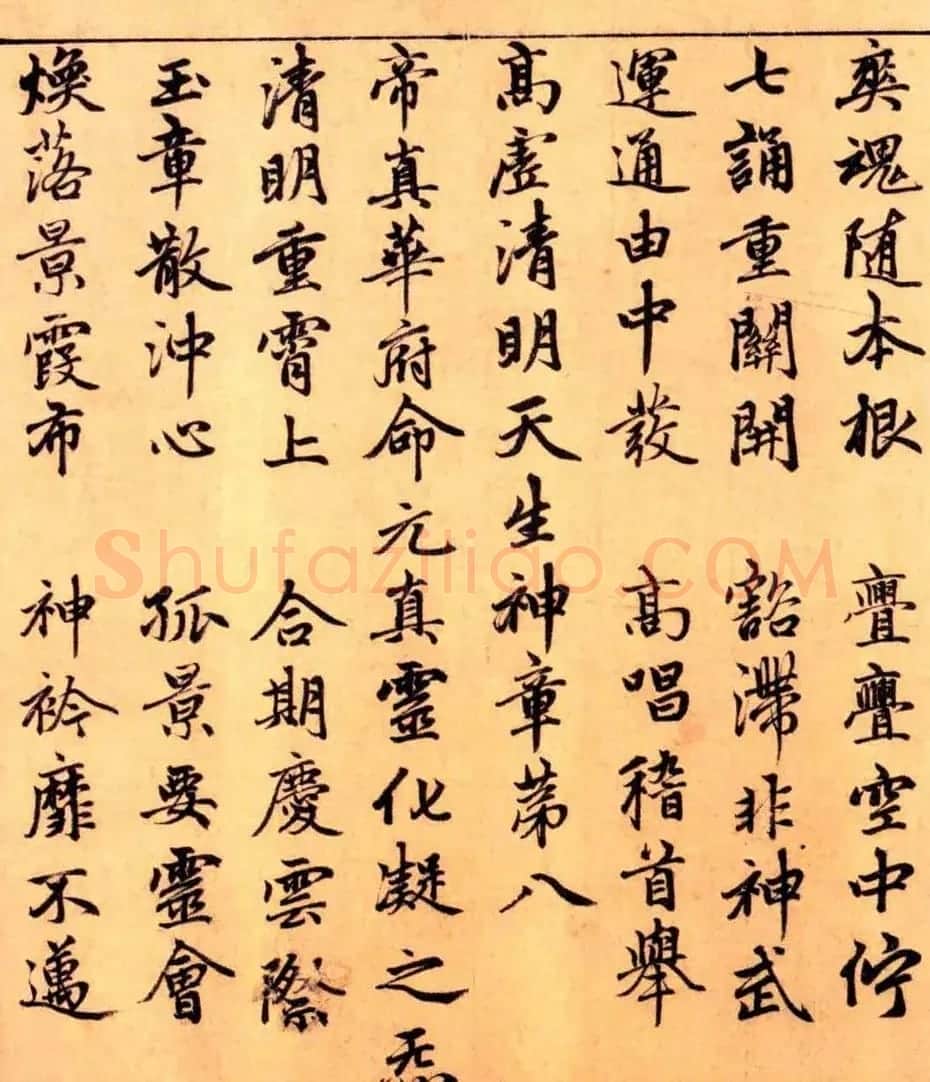 爽魂随本根 亹亹空中佇
七誦重關開 豁滯非神武
運通由中發 高唱稽首舉
高虛清明天生神章第八
帝真華府命元真靈化凝之炁
清明重霄上 合期慶雲際
玉章散沖心 孤景要靈會
煥落景霞布 神衿靡不邁
Shufaziliao.COM